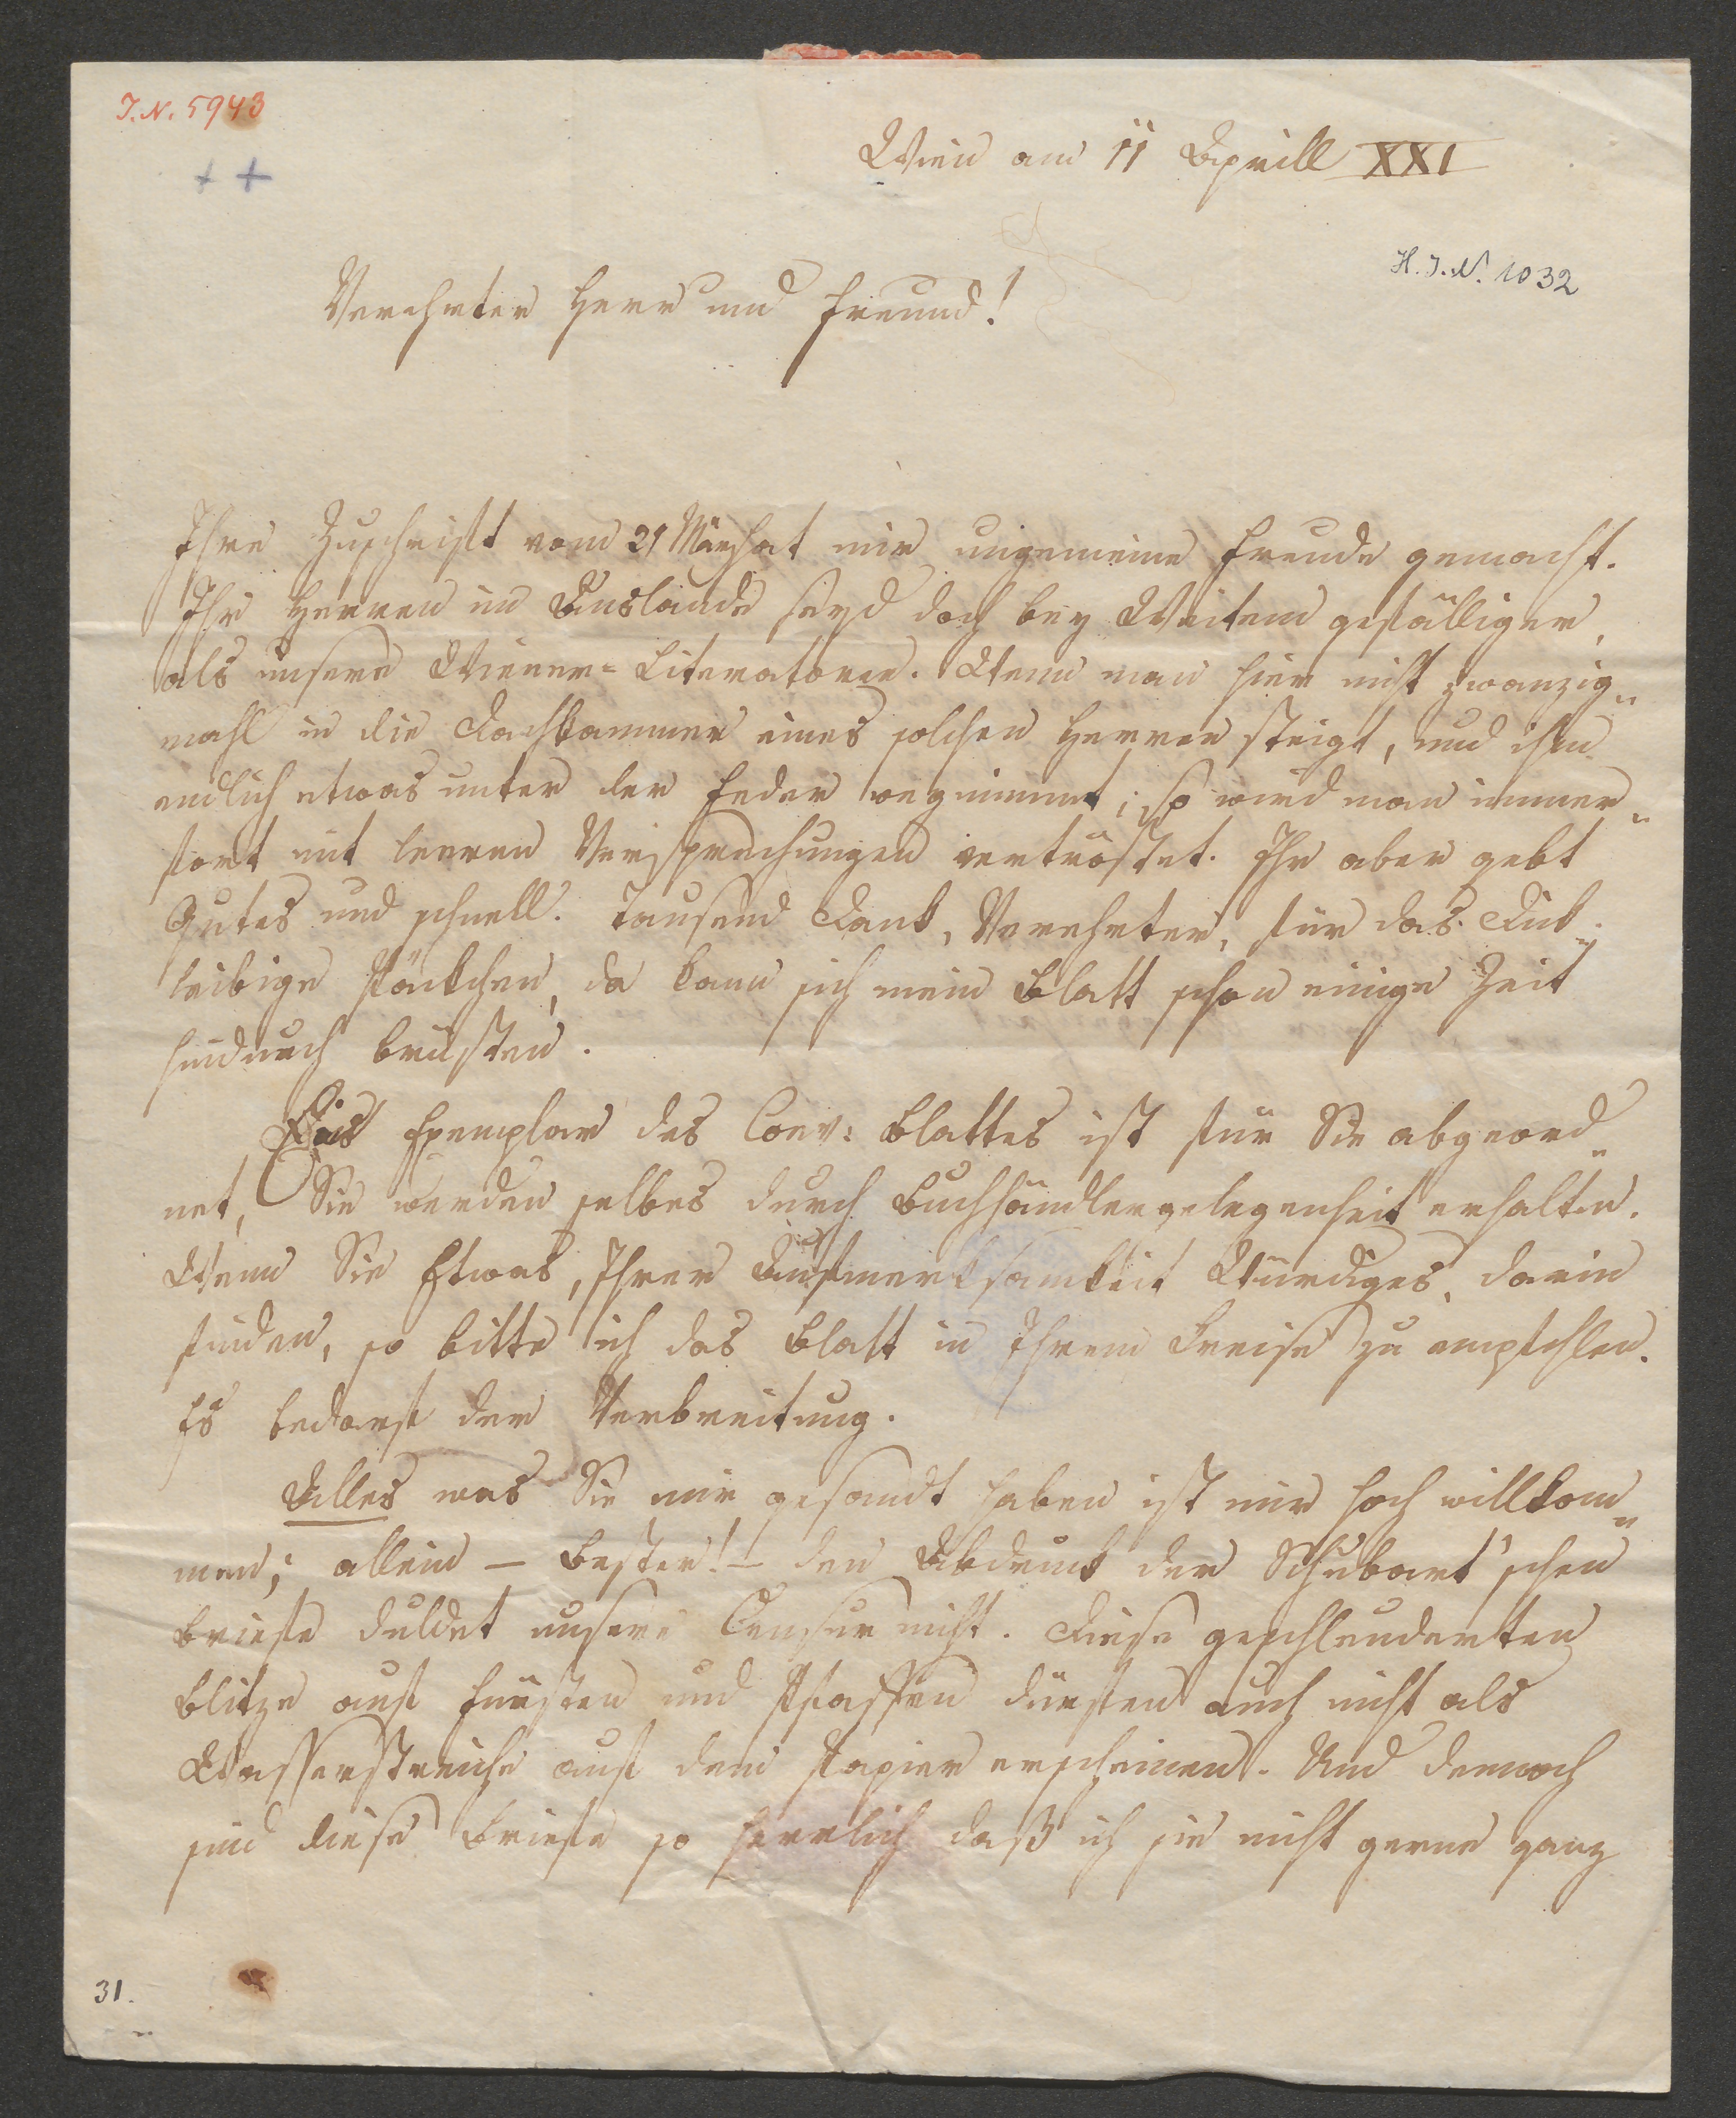 I.N. 5943
Wien am 11 Aprill XXI
H.I.N. 1032
Verehrter Herr und Freund!
Ihre Zuschrift vom 21 März hat mir ungemeine Freude gemacht.
Ihr Herren im Auslande seyd doch bey Weitem gefälliger,
als unsere Wiener-Literatoren. Wenn man hier nicht zwanzig-
mahl in die Dachkammer eines solchen Herren steigt, und ihm
endlich etwas unter der Feder wegnimmt; so wird man immer-
fort mit leeren Versprechungen vertröstet. Ihr aber gebt
Gutes und schnell. Tausend Dank, Verehrter, für das Dick-
leibige Päckchen, da kann sich mein Blatt schon einige Zeit
hindurch brüsten.
Ein Exemplar des Conv: Blattes ist für Sie abgeord-
net, Sie werden selbes durch Buchhändlergelegenheit erhalten.
Wenn Sie Etwas, Ihrer Aufmerksamkeit Würdiges, darin
finden, so bitte ich das Blatt in Ihrem Kreise zu empfehlen.
Es bedarf der Verbreitung.
Alles was Sie mir gesandt haben ist mir hoch willkom-
men; allein – Bester! – den Abdruck der Schubart'schen
Briefe duldet unsere Censur nicht. Diese geschleuderten
Blitze auf Fürsten und Pfaffen dürften auch nicht als
Wasserstreiche auf dem Papier erscheinen. Und dennoch
sind diese Briefe so herrlich daß ich sie nicht gerne ganz
31.